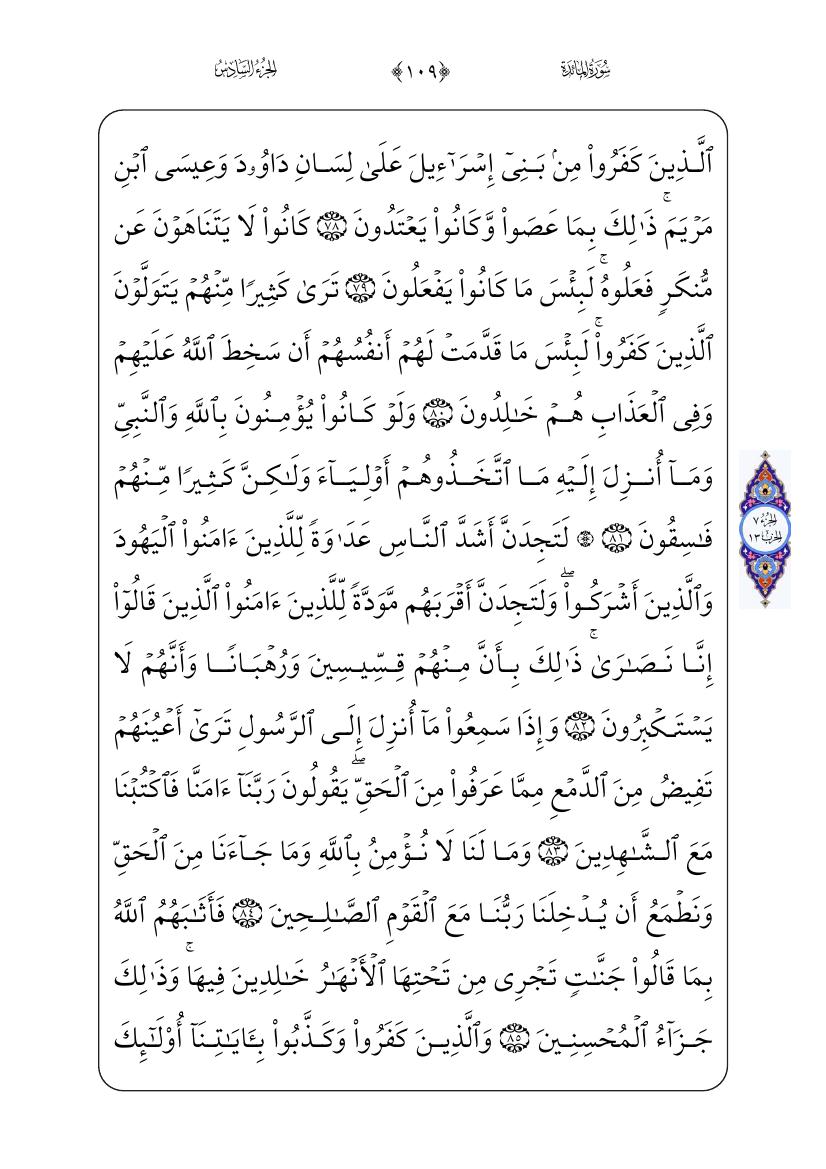 سُورَةُ المَائدَة
﴿١٠٩﴾
الجُزءُ السَّادِسُ
ٱلَّذِينَ كَفَرُوا۟ مِنۢ بَنِىٓ إِسْرَٰٓءِيلَ عَلَىٰ لِسَانِ دَاوُۥدَ وَعِيسَى ٱبْنِ
مَرْيَمَ ۚ ذَٰلِكَ بِمَا عَصَوا۟ وَّكَانُوا۟ يَعْتَدُونَ ۝٧٨ كَانُوا۟ لَا يَتَنَاهَوْنَ عَن
مُّنكَرٍ فَعَلُوهُ ۚ لَبِئْسَ مَا كَانُوا۟ يَفْعَلُونَ ۝٧٩ تَرَىٰ كَثِيرًا مِّنْهُمْ يَتَوَلَّوْنَ
ٱلَّذِينَ كَفَرُوا۟ ۚ لَبِئْسَ مَا قَدَّمَتْ لَهُمْ أَنفُسُهُمْ أَن سَخِطَ ٱللَّهُ عَلَيْهِمْ
وَفِى ٱلْعَذَابِ هُمْ خَٰلِدُونَ ۝٨٠ وَلَوْ كَانُوا۟ يُؤْمِنُونَ بِٱللَّهِ وَٱلنَّبِىِّ
وَمَآ أُنزِلَ إِلَيْهِ مَا ٱتَّخَذُوهُمْ أَوْلِيَآءَ وَلَٰكِنَّ كَثِيرًا مِّنْهُمْ
فَٰسِقُونَ ۝٨١ ۞ لَتَجِدَنَّ أَشَدَّ ٱلنَّاسِ عَدَٰوَةً لِّلَّذِينَ ءَامَنُوا۟ ٱلْيَهُودَ
وَٱلَّذِينَ أَشْرَكُوا۟ ۖ وَلَتَجِدَنَّ أَقْرَبَهُم مَّوَدَّةً لِّلَّذِينَ ءَامَنُوا۟ ٱلَّذِينَ قَالُوٓا۟
إِنَّا نَصَٰرَىٰ ۚ ذَٰلِكَ بِأَنَّ مِنْهُمْ قِسِّيسِينَ وَرُهْبَانًا وَأَنَّهُمْ لَا
يَسْتَكْبِرُونَ ۝٨٢ وَإِذَا سَمِعُوا۟ مَآ أُنزِلَ إِلَى ٱلرَّسُولِ تَرَىٰٓ أَعْيُنَهُمْ
تَفِيضُ مِنَ ٱلدَّمْعِ مِمَّا عَرَفُوا۟ مِنَ ٱلْحَقِّ ۖ يَقُولُونَ رَبَّنَآ ءَامَنَّا فَٱكْتُبْنَا
مَعَ ٱلشَّٰهِدِينَ ۝٨٣ وَمَا لَنَا لَا نُؤْمِنُ بِٱللَّهِ وَمَا جَآءَنَا مِنَ ٱلْحَقِّ
وَنَطْمَعُ أَن يُدْخِلَنَا رَبُّنَا مَعَ ٱلْقَوْمِ ٱلصَّٰلِحِينَ ۝٨٤ فَأَثَٰبَهُمُ ٱللَّهُ
بِمَا قَالُوا۟ جَنَّٰتٍ تَجْرِى مِن تَحْتِهَا ٱلْأَنْهَٰرُ خَٰلِدِينَ فِيهَا ۚ وَذَٰلِكَ
جَزَآءُ ٱلْمُحْسِنِينَ ۝٨٥ وَٱلَّذِينَ كَفَرُوا۟ وَكَذَّبُوا۟ بِـَٔايَٰتِنَآ أُو۟لَٰٓئِكَ
الجُزء ٧
الحِزب ١٣